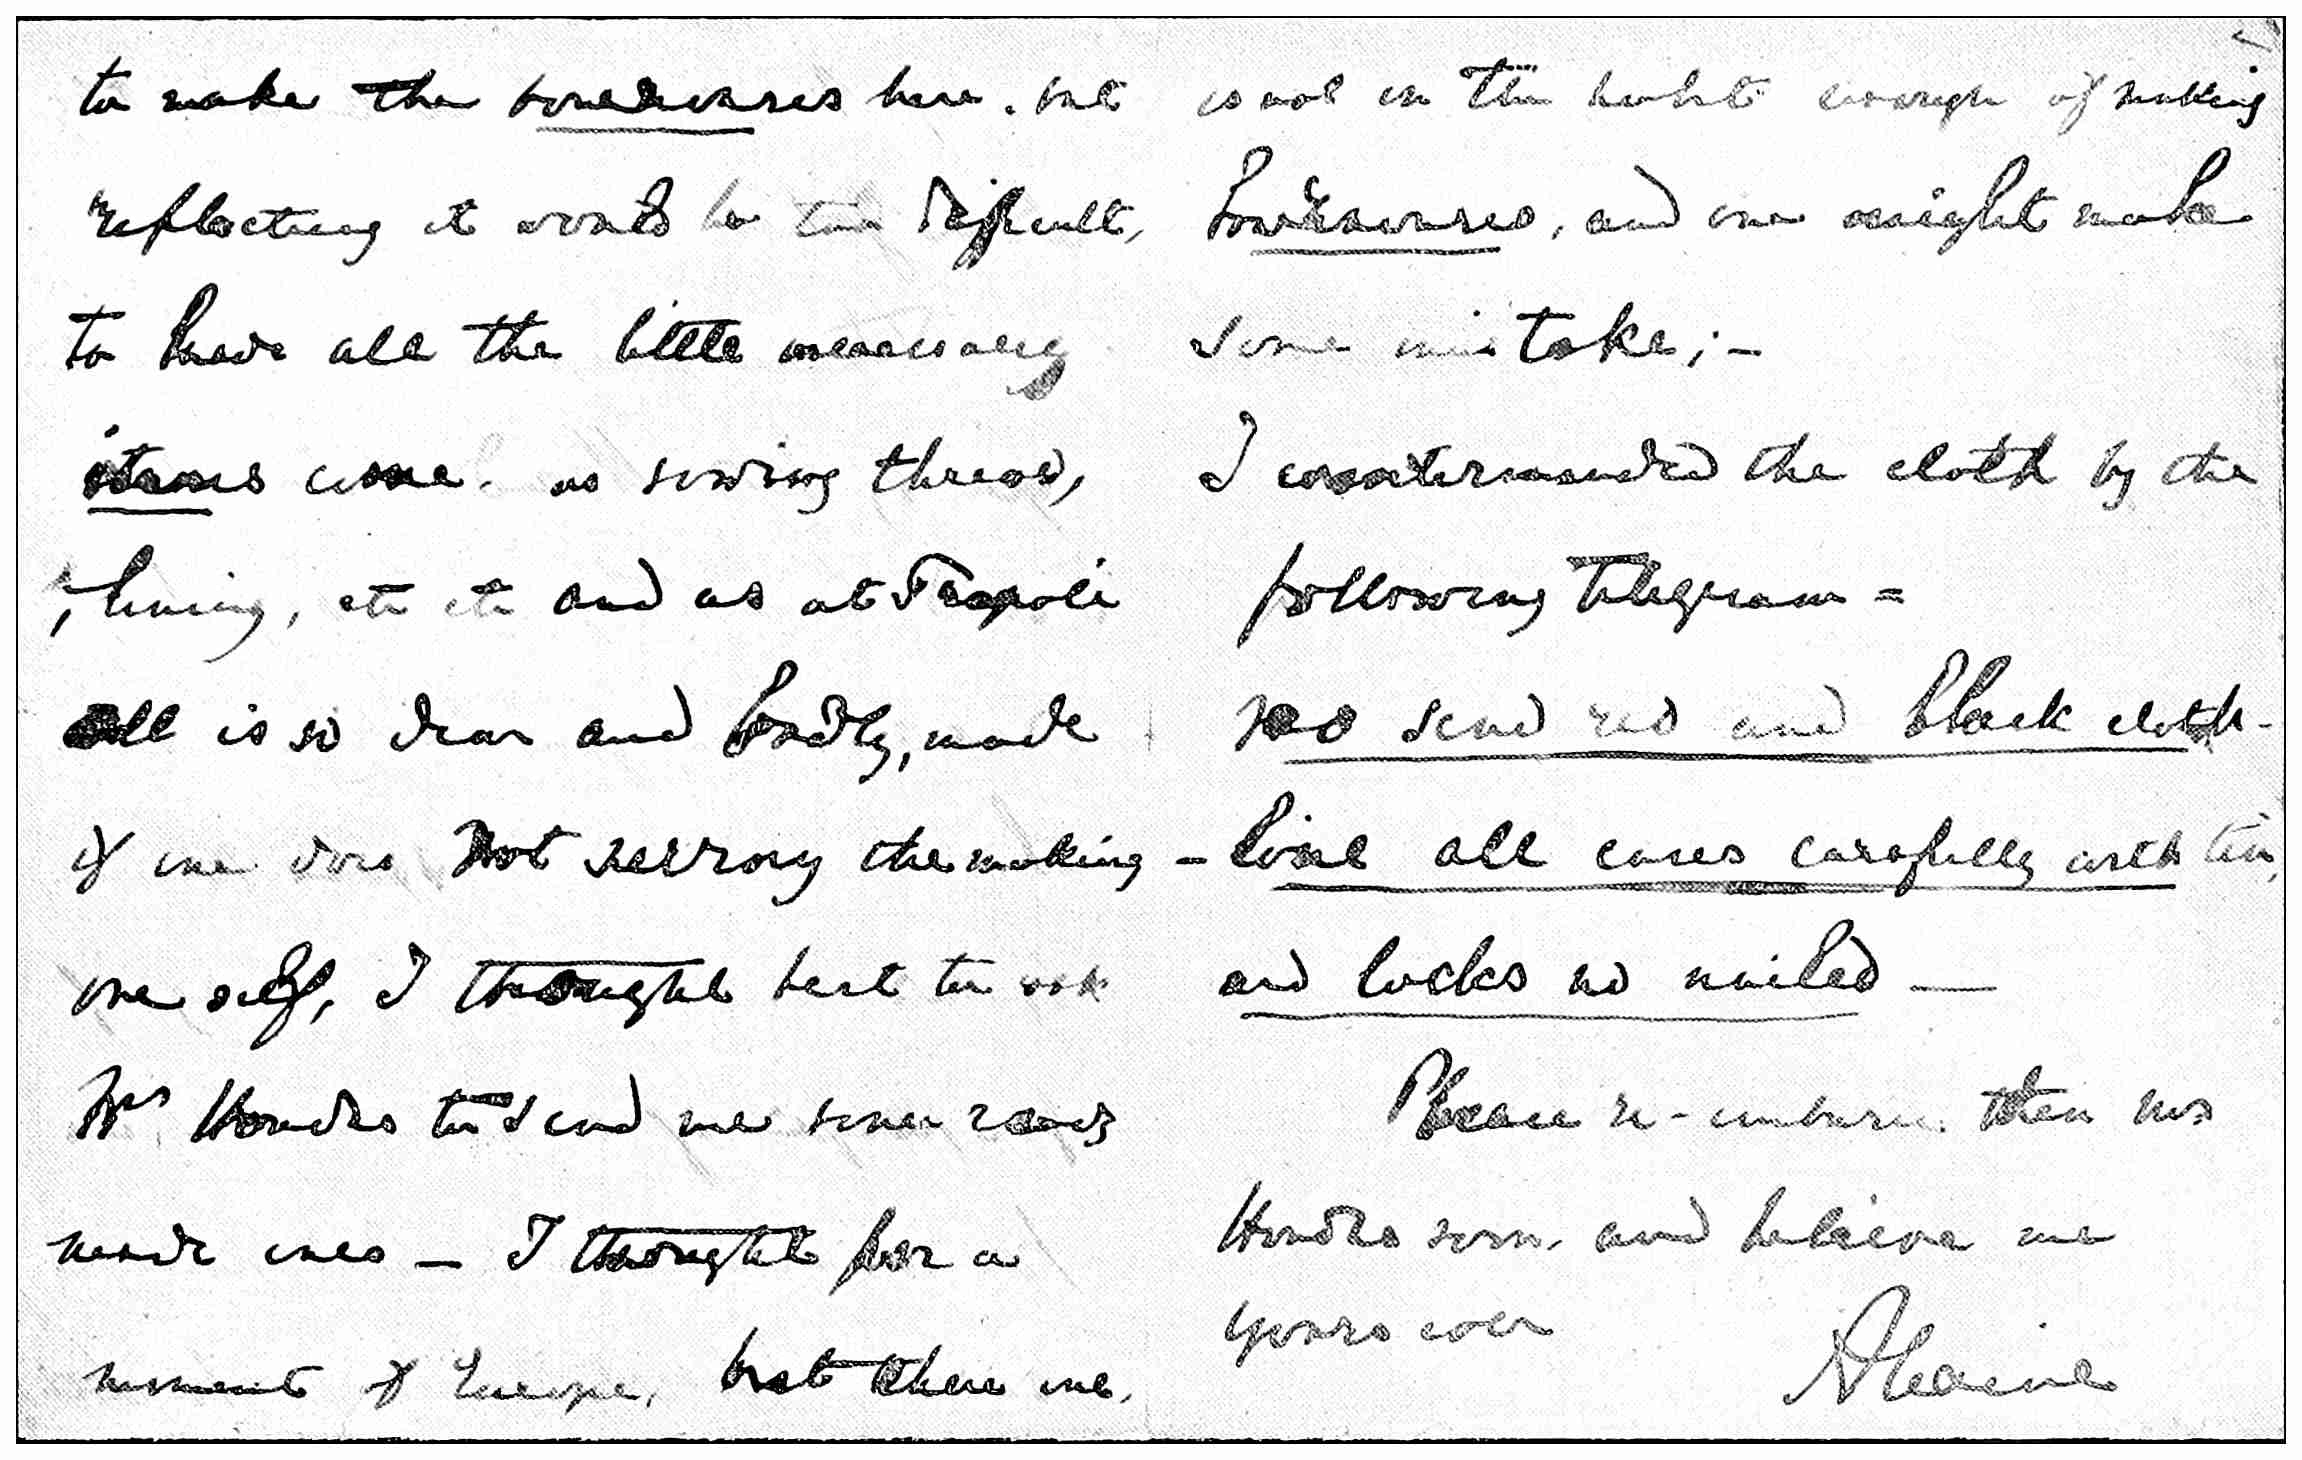 to make the bournouses here. but
reflecting it would be too difficult,
to have all the little necessary
items come. as sewing thread,
, lining, etc etc and as at Tripoli
all is so dear and badly, made
if one does not survey the making
one self, I thought best to ask
to send me some ready
made ones — I thought for a
moment of Europe, but there one,
is not in the habit enough of making
bournouses, and one might make
some mistake; -
I countermanded the cloth by the
following Telegram =
no send red and black cloth -
- line all cases carefully with tin,
and locks no nailed —
Please re-imburse then
soon, and believe me
yours ever
Alexine